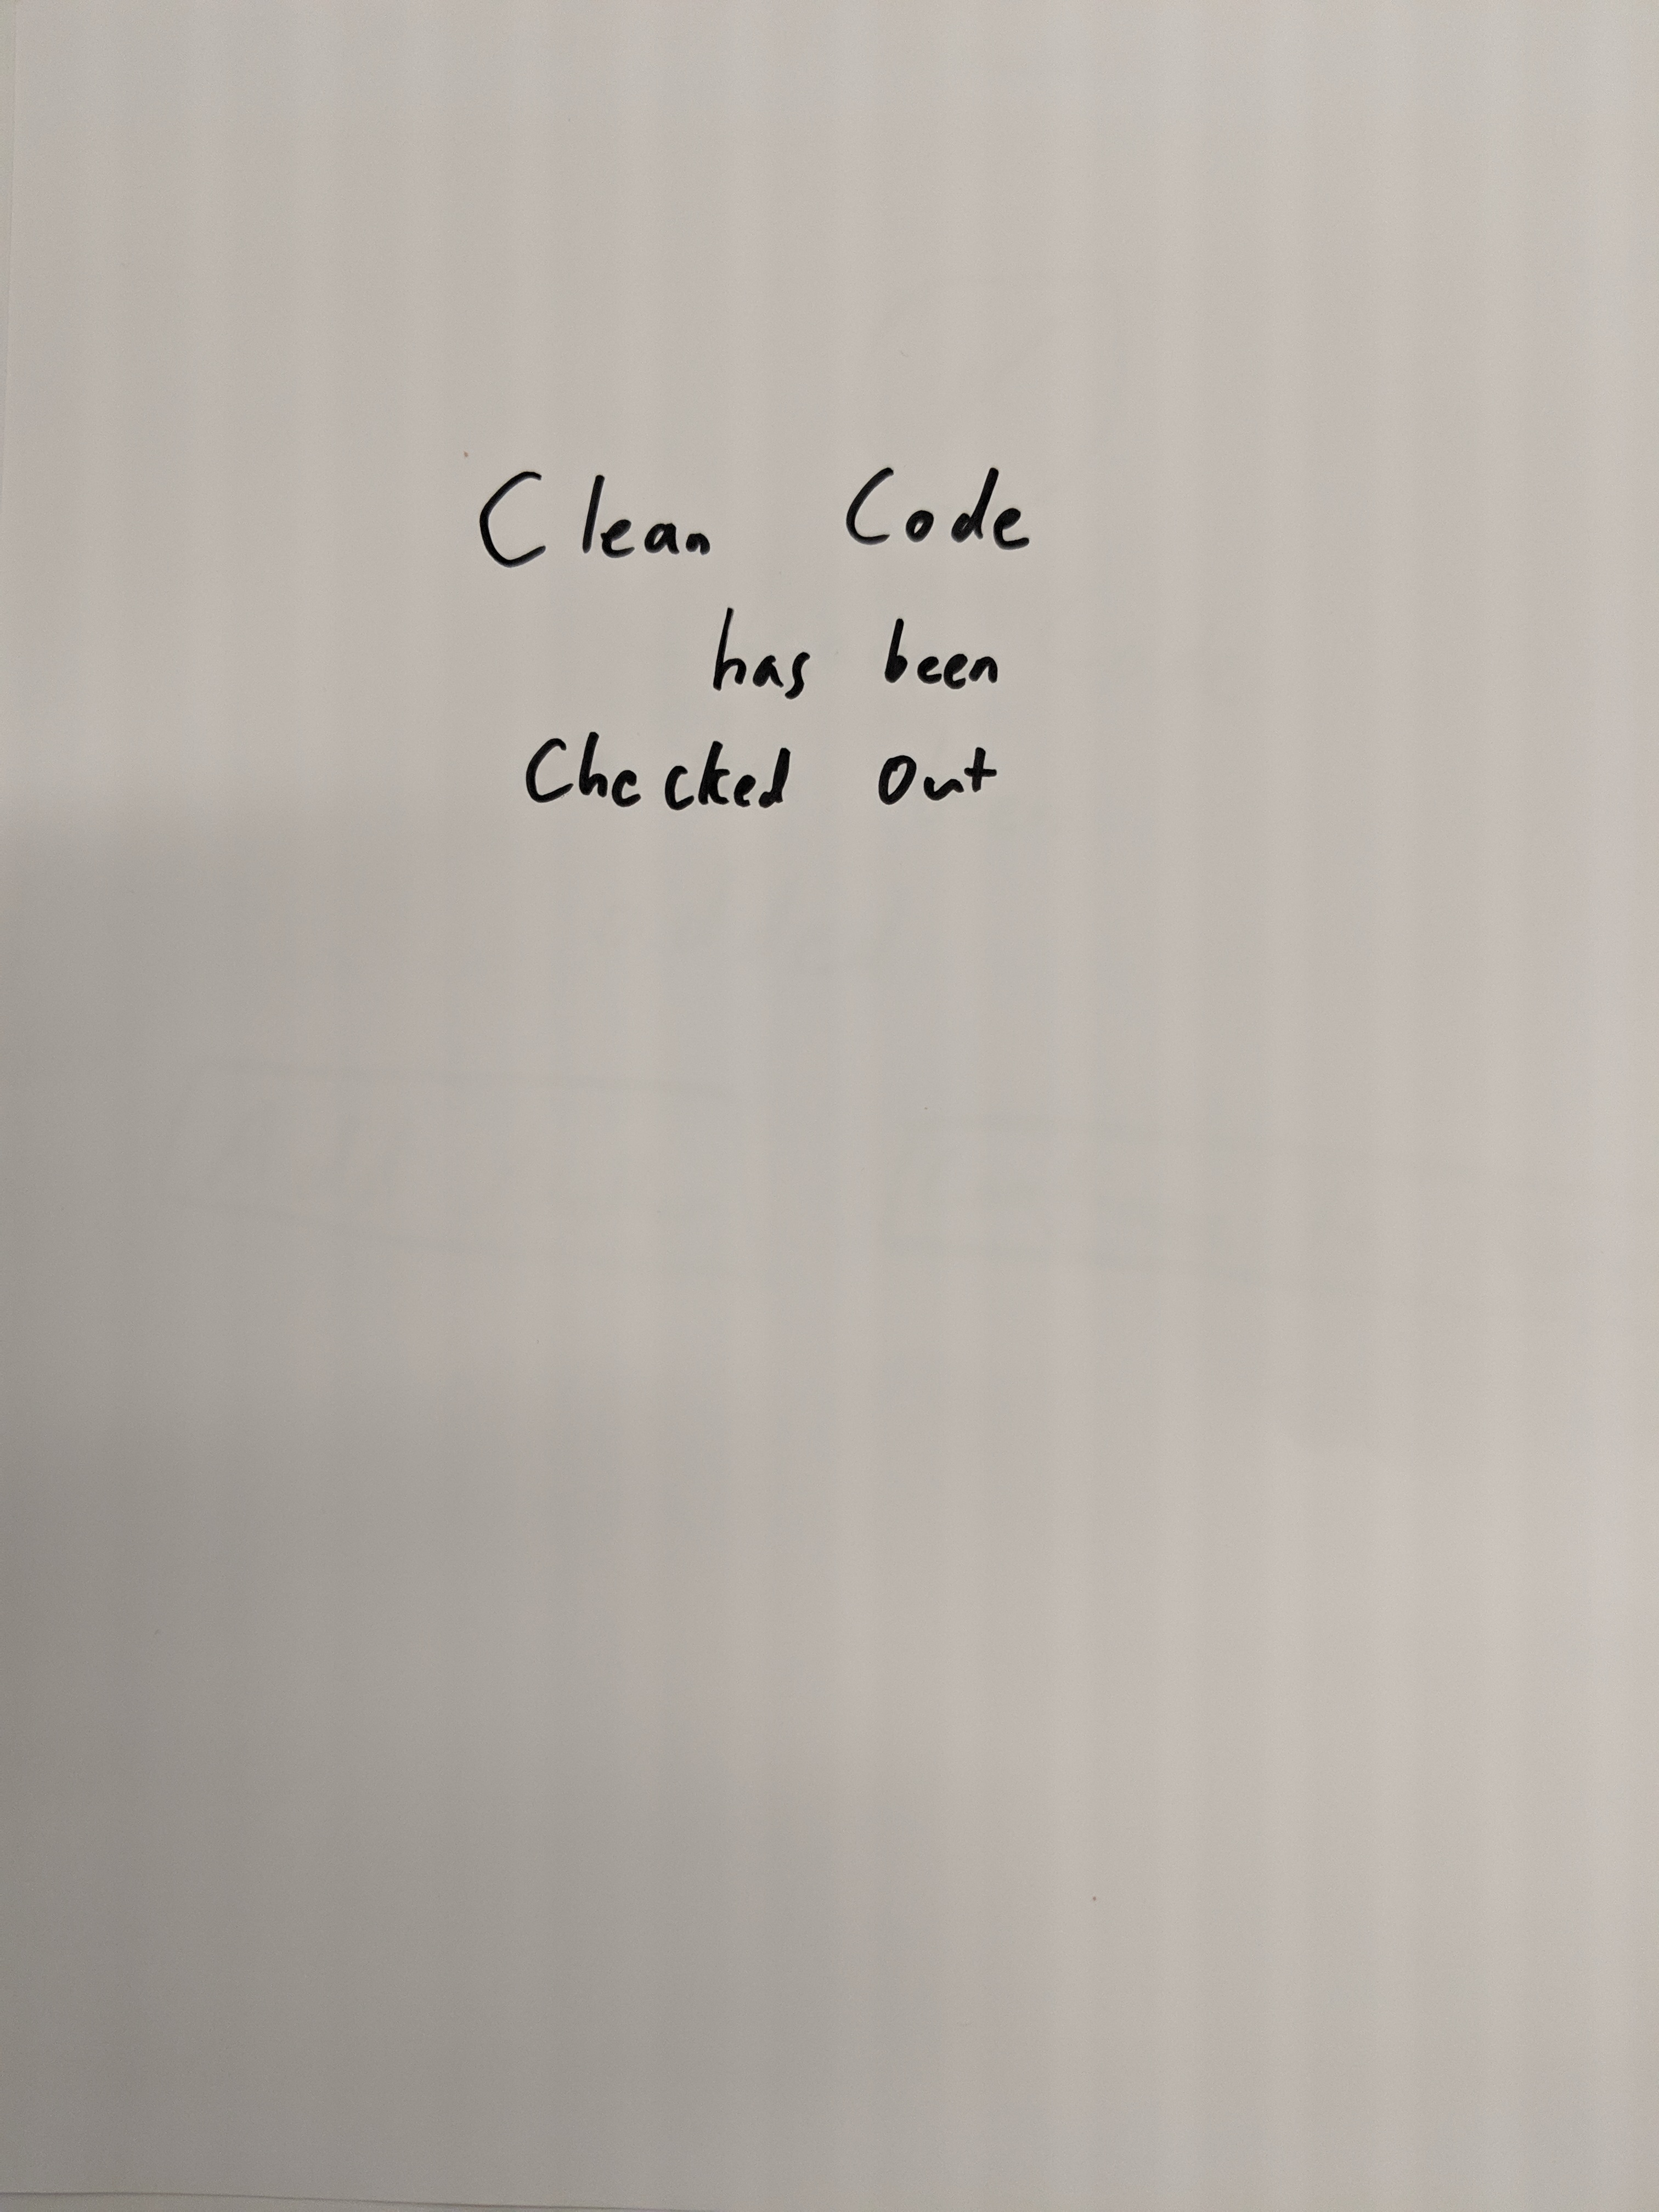 Clean Code
has been
Checked Out